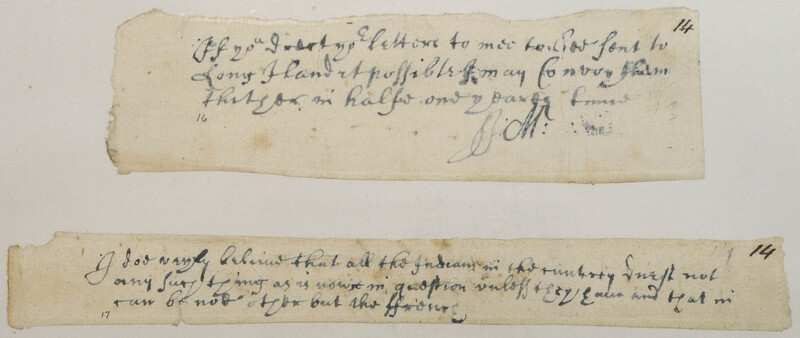 14
If yo^u direct yo^r letters to mee to bee sent to
Long Iland it possible I may Convoy them
thither in halfe one yeares time
16
J: M^r.
14
I doe veryly believe that all the Indians in the cuntrey durst not
any such thing as is nowe in question unless they have and that in
can be noe other but the ffrench
17